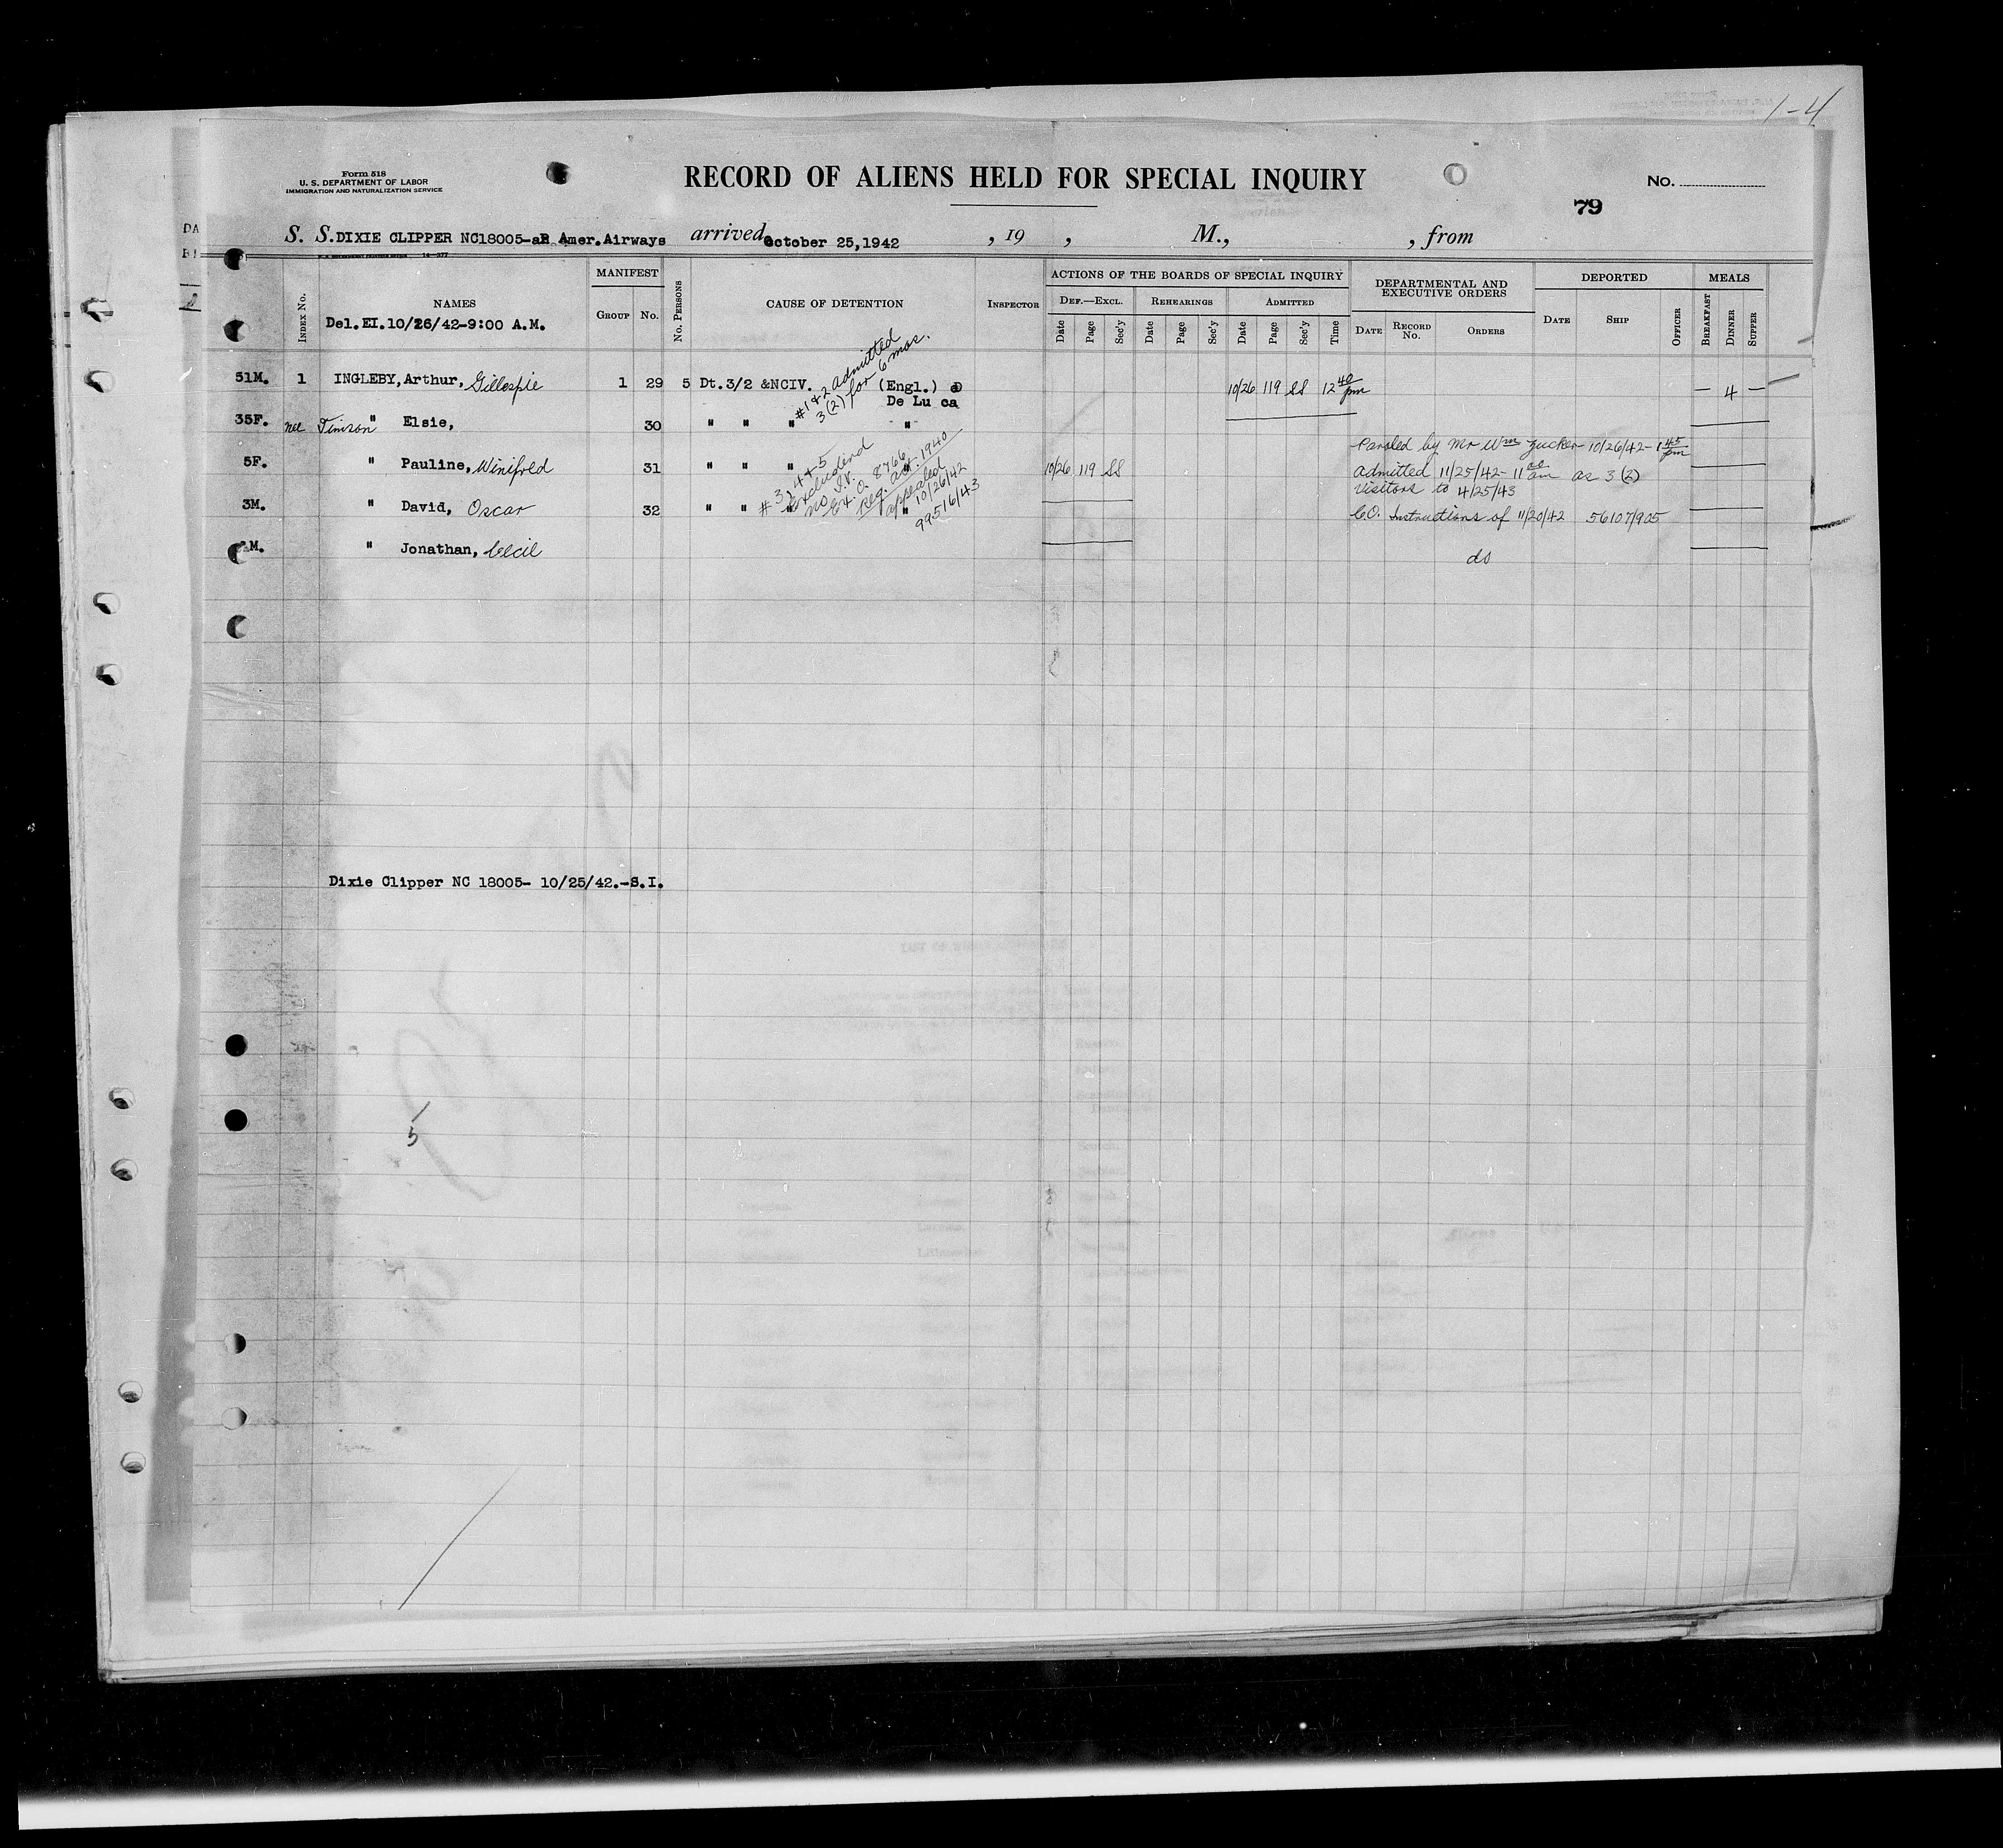 1-4
Form 518
U. S. DEPARTMENT OF LABOR
IMMIGRATION AND NATURALIZATION SERVICE
RECORD OF ALIENS HELD FOR SPECIAL INQUIRY
No.
79
S. S. DIXIE CLIPPER NC18005- Amer.Airways arrived October 25,1942 , 19 , M., , from
Index No.
NAMES
Del.EI.10/26/42-9:00 A.M.
MANIFEST
Group
No.
No. Persons
CAUSE OF DETENTION
Inspector
ACTIONS OF THE BOARDS OF SPECIAL INQUIRY
Def.—Excl.
Rehearings
Admitted
Date Page Sec'y Date Page Sec'y Date Page Sec'y Time
DEPARTMENTAL AND EXECUTIVE ORDERS
Date Record No. Orders
DEPORTED
Date Ship Officer
MEALS
Breakfast Dinner Supper
51M. 1 INGLEBY,Arthur, Gillespie 1 29 5 Dt.3/2 &NCIV. (Engl.) 10/26 119 SS 12 40 pm — 4 —
De Lu ca
#1 & 2 admitted
3(2) for 6 mos.
35F. nee Timson " Elsie, 30 " " " "
Paroled by Mr Wm Zucker 10/26/42- 1 45 pm
5F. " Pauline, Winifred 31 " " " 10/26 119 SS admitted 11/25/42- 11 00 am as 3(2)
Visitors to 4/25/43
# 3, 4 & 5
no I.V.
Ex. O. 8766
Reg. Act. 1940
appealed
10/26/42
99516/43
3M. " David, Oscar 32 " " " " C.O. Instructions of 11/20/42 56107/905
M. " Jonathan, Cecil do
Dixie Clipper NC 18005- 10/25/42.-S.I.
5